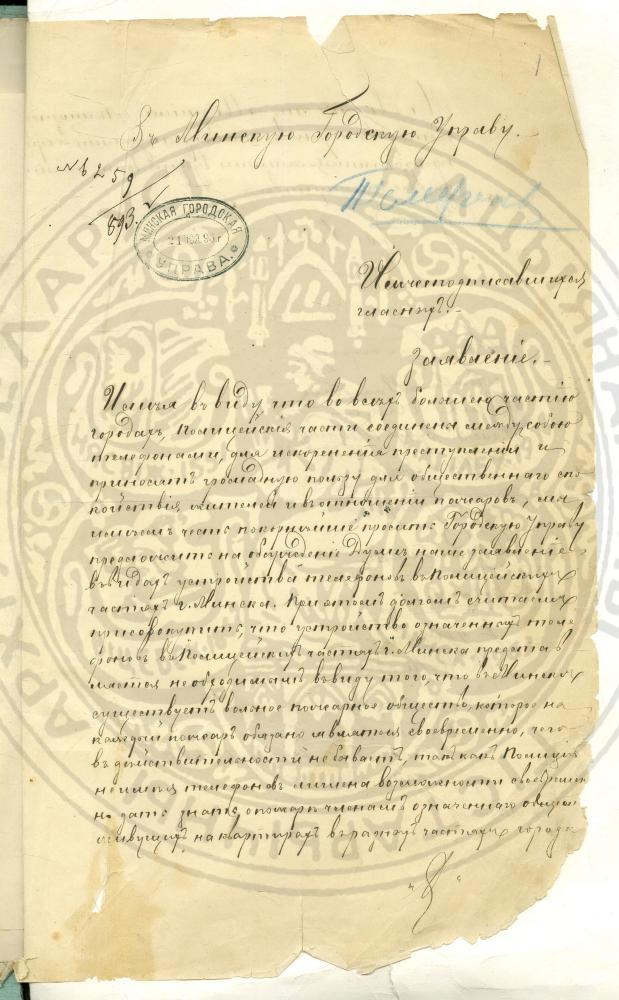 1
Въ Минскую Городскую Управу.
№ 6259
893.
МИНСКАЯ ГОРОДСКАЯ
21 ІЮЛ. 90 г
УПРАВА.
Нижеподписавшихся
гласныхъ.
Заявленіе.
Имѣя въ виду, что во всѣхъ большею частію
городахъ, Полицейскія части соединены между собою
телефонами, для искорененія преступленій и
приносятъ громадную пользу для общественнаго спо-
койствія жителей и въ отношеніи пожаровъ, мы
имѣемъ честь покорнѣйше просить Городскую Управу
предложить на обсужденіе Думы наше заявленіе
въ видахъ устройства телефоновъ въ Полицейскихъ
частяхъ г. Минска. При этомъ долгомъ считаемъ
присовокупить, что устройство означенныхъ теле
фоновъ въ Полицейскихъ частяхъ г. Минска представ
ляется необходимымъ въ виду того, что въ Минскѣ
существуетъ вольное пожарное общество, которое на
каждый пожаръ обязано являться своевременно, чего
въ дѣйствительности не бываетъ, такъ какъ Полиція
не имѣя телефоновъ лишена возможности своевремен
но дать знать, о пожарѣ членамъ означеннаго общест
живущихъ на квартирахъ въ разныхъ частяхъ города